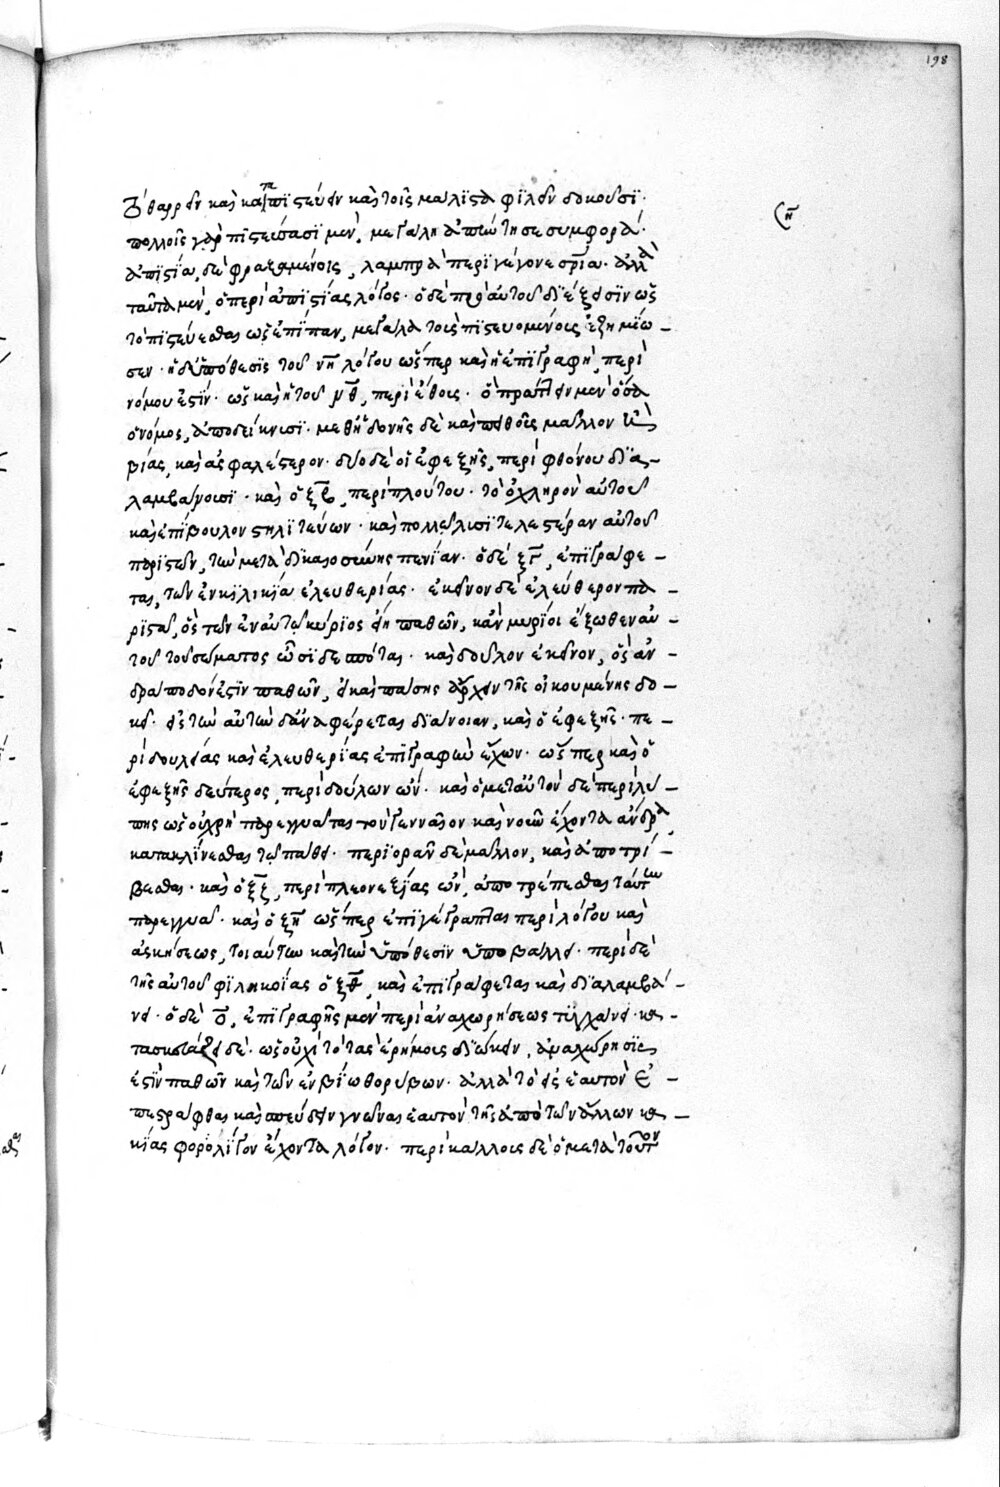 198
θαρρεῖν καὶ καταπιστεύειν καὶ τοῖς μάλιστα φιλεῖν δοκοῦσι·
πολλοῖς γὰρ πιστεύσασι μὲν, μεγάλη ἀπήντησε συμφορά·
ἀπιστία δὲ φραξαμένοις, λαμπρὰ περιγέγονε σωτηρία· ἀλλὰ
ταῦτα μὲν, ὁ περὶ ἀπιστίας λόγος· ὁ δὲ πρὸ αὐτοῦ διέξεισιν ὡς
τὸ πιστεύεσθαι ὡς ἐπίπαν, μεγάλα τοὺς πιστευομένους ἐζημίω–
σεν· ἡ δ' ὑπόθεσις τοῦ νη λόγου ὥσπερ καὶ ἡ ἐπιγραφὴ, περὶ
νόμου ἐστίν· ὡς καὶ ἡ τοῦ νθ, περὶ ἔθους· ὃ πράττειν μὲν ὅσα
ὁ νόμος, ἀποδείκνυσι· μεθ' ἡδονῆς δὲ καὶ πειθοῦς μᾶλλον ἢ
βίας, καὶ ἀσφαλέστερον· δύο δὲ οἱ ἐφεξῆς, περὶ φθόνου δια–
λαμβάνουσι· καὶ ὁ ξβ, περὶ πλούτου· τὸ ὀχληρὸν αὐτοῦ
καὶ ἐπίβουλον στηλιτεύων· καὶ πολλῷ λυσιτελεστέραν αὐτοῦ
παριστῶν, τὴν μετὰ δικαιοσύνης πενίαν· ὁ δὲ ξγ, ἐπιγράφε–
ται, τῶν ἐν κιλικίᾳ ἐλευθερίας· ἐκεῖνον δὲ ἐλεύθερον πα–
ριστᾷ, ὃς τῶν ἐν αὐτῷ κύριος εἴη παθῶν, κἂν μυρίοι ἔξωθεν αὐ–
τοῦ τοῦ σώματος ὦσι δεσπόται· καὶ δοῦλον ἐκεῖνον, ὃς ἀν–
δράποδόν ἐστιν παθῶν, εἰ καὶ πάσης ἄρχειν τῆς οἰκουμένης δο–
κεῖ· εἰς τὴν αὐτὴν δ' ἀναφέρεται διάνοιαν, καὶ ὁ ἐφεξῆς· πε–
ρὶ δουλείας καὶ ἐλευθερίας ἐπιγραφὴν ἔχων· ὥσπερ καὶ ὁ
ἐφεξῆς δεύτερος, περὶ δούλων ὤν· καὶ ὁ μετ' αὐτὸν δὲ περὶ λύ–
πης ὡς οὐ χρὴ παρεγγυᾶται τὸν γενναῖον καὶ νοῦν ἔχοντα ἄνδρα,
κατακλίνεσθαι τῷ πάθει· περιορᾶν δὲ μᾶλλον, καὶ ἀποτρί–
βεσθαι· καὶ ὁ ξζ, περὶ πλεονεξίας ὢν, ἀποτρέπεσθαι ταύτην
παρεγγυᾷ· καὶ ὁ ξη ὥσπερ ἐπιγέγραπται περὶ λόγου καὶ
ἀσκήσεως, τοιαύτην καὶ τὴν ὑπόθεσιν ὑποβάλλει· περὶ δὲ
τῆς αὐτοῦ φιληκοΐας ὁ ξθ, καὶ ἐπιγράφεται καὶ διαλαμβά–
νει· ὁ δὲ ο, ἐπιγραφῆς μὲν περὶ ἀναχωρήσεως τυγχάνει· κα–
τασκευάζει δὲ· ὡς οὐχὶ τὸ τὰς ἐρήμους διώκειν, ἀναχώρησις
ἐστὶν παθῶν καὶ τῶν ἐν βίῳ θορύβων· ἀλλὰ τὸ εἰς ἑαυτὸν ἐ–
πεστράφθαι καὶ σπεύδειν γνῶναι ἑαυτὸν τῆς ἀπὸ τῶν ἄλλων κα–
κίας φορολίγον ἔχοντα λόγον· περὶ κάλλους δὲ ὁ μετὰ τοῦτον